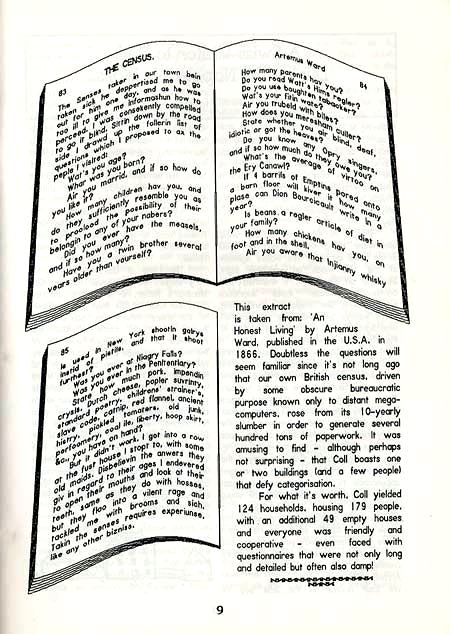 83
THE CENSUS.
The Senses taker in our town bein
taken sick he deppertised me to go
out for him one day, and as he was
too ill to give me informashun how to
perceed, I was consekently compelled
to go it blind. Sittin down by the road
side I drawd up the follerin list of
questions which I proposed to ax the
peple I visited:
Wat's you age?
What was you born?
Air you marrid, and if so how do
you like it?
How many children hav you, and
do they sufficiently resemble you as
to proclood the possibility of their
belongin to any of your nabers?
Did you ever have the measels,
and if so how many?
Have you a twin brother several
years older than yourself?
Artemus Ward
84
How many parents hav you?
Do you read Watt's Hims regler?
Do you use boughten tabacker?
Wat's your fitin wate?
Air you trubeld with biles?
How does you meresham culler?
State whether you air blind, deaf,
idiotic or got the heaves?
Do you know any Opry singers,
and if so how much do they owe you?
What's the average of virtoo on
the Ery Canawl?
If 4 barrils of Emptins pored onto
a barn floor will kiver it how many
plase can Dion Bourcicault write in a
year?
Is beans a regler article of diet in
your family?
How many chickens hav you, on
foot and in the shell,
Air you aware that Injianny whisky
85
is used in New York shootin galrys
instid of pistils, and that it shoot
furthest?
Was you ever at Niagry Falls?
Was you ever in the Penitentiary?
State how much pork, impendin
crysis, Dutch cheese, popler suvrinty,
standard poetry, childrens' strainer's,
slave code, catnip, red flannel, ancient
histry, pickled tomaters, old junk,
perfoomery, coal ile, liberty, hoop skirt,
&c., you have on hand?
But it didn't work. I got into a row
at the fust house I stopt to, with some
old maids. Disbelievin the anwers they
giv in regard to their ages I endevered
to open their mouths and look at their
teeth, same as they do with hosses,
but they floo into a vilent rage and
tackled me with brooms and sich.
Takin the senses requires experiunse,
like any other bizniss.
This extract
is taken from: 'An
Honest Living' by Artemus
Ward, published in the U.S.A. in
1866. Doubtless the questions will
seem familiar since it's not long ago
that our own British census, driven
by some obscure bureaucratic
purpose known only to distant mega-
computers, rose from its 10-yearly
slumber in order to generate several
hundred tons of paperwork. It was
amusing to find - although perhaps
not surprising - that Coll boasts one
or two buildings (and a few people)
that defy categorisation.
For what it's worth, Coll yielded
124 households, housing 179 people,
with an additional 49 empty houses
and everyone was friendly and
cooperative - even faced with
questionnaires that were not only long
and detailed but often also damp!
9